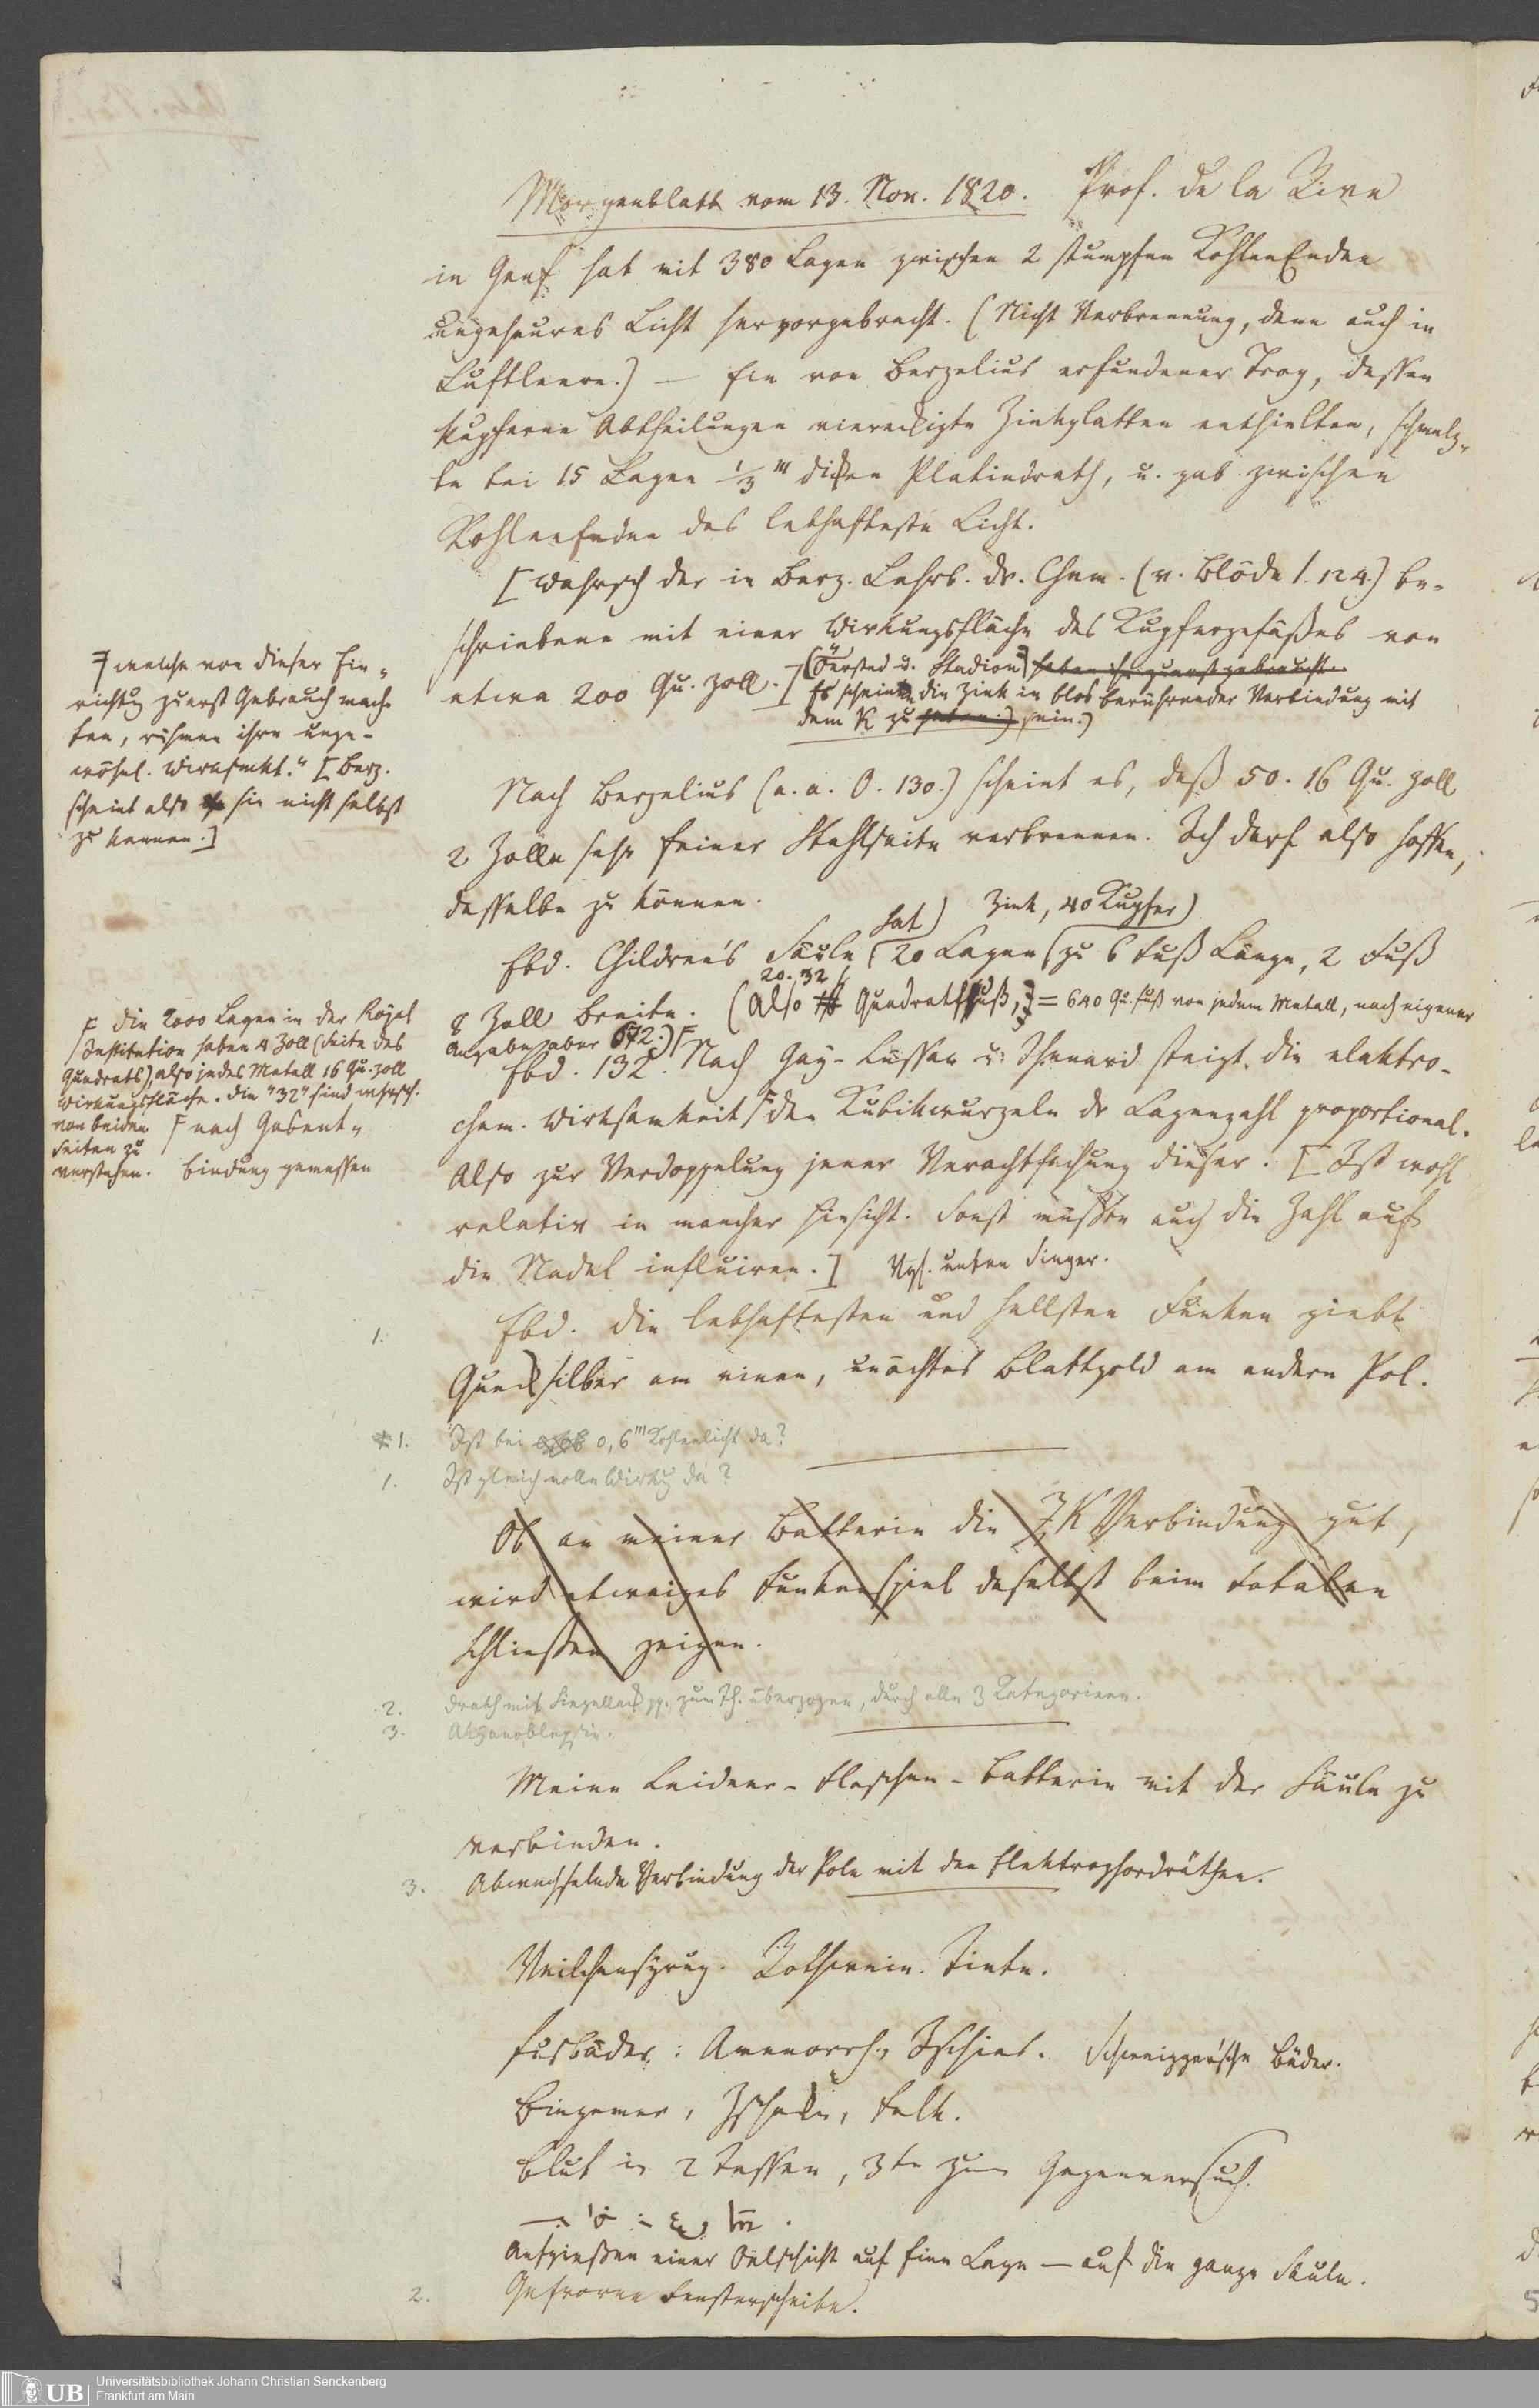 Morgenblatt vom 13. Nov. 1820. Prof. de la Rive
in Genf hat mit 380 Lagen zwischen 2 stumpfen KohlenEnden
ungeheures Licht hervorgebracht. (Nicht Verbrennung, denn auch in
Luftleere.) — Ein von Berzelius erfundener Trog, dessen
kupferne Abtheilungen viereckigte Zinkplatten enthielten, schmelz-
te bei 15 Lagen 1/3''' dicken Platindrath, u. gab zwischen
Kohlenenden das lebhafteste Licht.
[Wahrsch der in Berz. Lehrb. dr. Chem. (v. Blöde 1. 124.) be-
schriebene mit einer Wirkungsfläche des Kupfergefäßes von
etwa 200 Qu. Zoll.] (Örsted u. Stadion) haben sie zuerst gebraucht.
Es scheint die Zink in blos berührender Verbindung mit
dem K zu haben.) sein.)
F welche von dieser Ein-
richtg zuerst Gebrauch mach-
ten, rühmen ihre unge-
wöhnl. Wirksmkt." [Berz.
scheint also sie nicht selbst
zu kennen.]
Nach Berzelius (a. a. O. 130.) scheint es, daß 50. 16 Qu. Zoll
2 Zolle sehr feiner Stahlsaite verbrennen. Ich darf also hoffen,
dasselbe zu können.
Ebd. Children's Säule (hat) 20 Lagen (zu 6 Fuß Länge, 2 Fuß
Zink, 40 Kupfer)
8 Zoll Breite. (Also 20. 32 Quadratfuß, = 640 Qu. Fuß von jedem Metall, nach eigener
Angabe aber 672.) F
F Die 2000 Lagen in der Royal
Institution haben 4 Zoll (Seite des
Quadrats), also jedes Metall 16 Qu. Zoll
Wirkungsfläche. Die "32" sind wahrsch.
von beiden
Seiten zu
verstehen.
Ebd. 132. Nach Gay-Lussac u. Thenard steigt die elektro-
chem. Wirksamkeit F den Kubikwurzeln dr Lagenzahl proportional.
F nach Gasent-
bindung gemessen
Also zur Verdoppelung jener Verachtfachung dieser. [Ist wohl
relativ in mancher Hinsicht. Sonst müßte auch die Zahl auf
die Nadel influiren.] Vgl. unten Singer.
1. Ebd. Die lebhaftesten und hellsten Funken giebt
Quecksilber am einen, unächtes Blattgold am andern Pol.
1. Ist bei 0,6''' Kohlenlicht da?
1. Ist gleich volle Wirkg da?
Ob an meiner Batterie die Z K Verbindung gut,
wird etwaiges Funkenspiel daselbst beim totalen
Schließen zeigen.
2. Drath mit Siegellack pp. zum Th. überzogen, durch alle 3 Kategorieen.
3.
Meine Leidner-Flaschen-Batterie mit der Säule zu
verbinden.
3. Abwechselnde Verbindung der Pole mit den Elektrophordräthen.
Veilchensyrup. Rothwein. Tinte.
Fusbäder: Amenorrh., Ischias. Schweiggersche Bäder.
Bingemer, Zschacke, Falk.
Blut in 2 Tassen, 3te zum Gegenversuch.
Aufgießen einer Oelschicht auf Eine Lage — auf die ganze Säule.
2. Gefrorne Fensterscheibe.
Universitätsbibliothek Johann Christian Senckenberg
Frankfurt am Main
UB